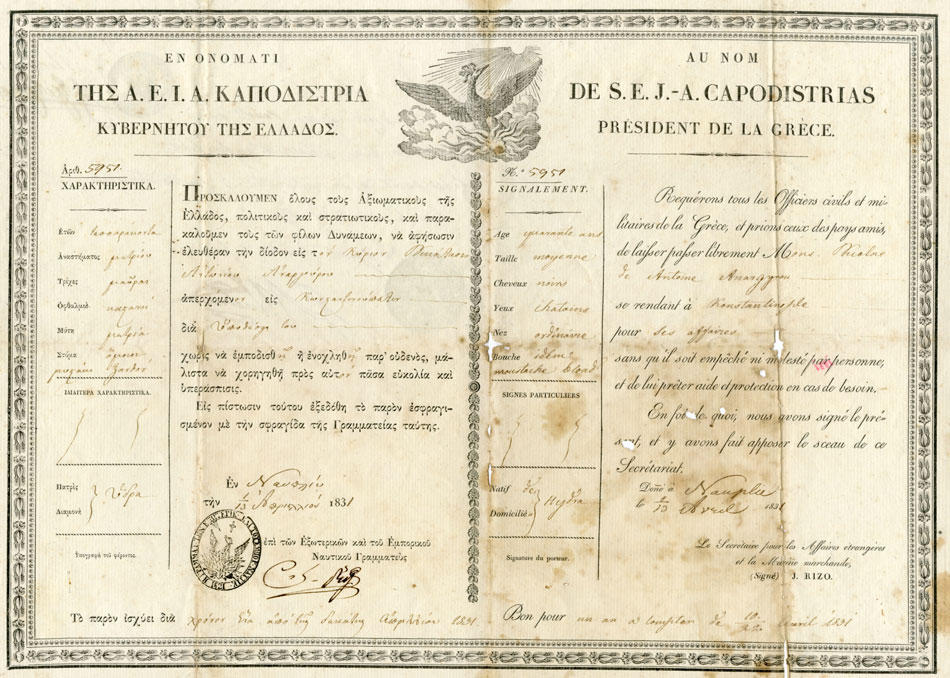 ΕΝ ΟΝΟΜΑΤΙ
ΤΗΣ Α. Ε. Ι. Α. ΚΑΠΟΔΙΣΤΡΙΑ
ΚΥΒΕΡΝΗΤΟΥ ΤΗΣ ΕΛΛΑΔΟΣ.
Ἀριθ. 5951
ΧΑΡΑΚΤΗΡΙΣΤΙΚΑ.
Ἐτῶν
Ἀναστήματος μετρίου
Τρίχες μαῦραι
Ὀφθαλμοὶ
Μύτη μετρία
Στόμα ὅμοιον
ΙΔΙΑΙΤΕΡΑ ΧΑΡΑΚΤΗΡΙΣΤΙΚΑ.
Πατρὶς
Διαμονὴ
Ὕδρα
Ὑπογραφὴ τοῦ φέροντος.
ΠΡΟΣΚΑΛΟΥΜΕΝ ὅλους τοὺς Ἀξιωματικοὺς τῆς
Ἑλλάδος, πολιτικοὺς καὶ στρατιωτικοὺς, καὶ παρα-
καλοῦμεν τοὺς τῶν φίλων Δυνάμεων, νὰ ἀφήσωσιν
ἐλευθέραν τὴν δίοδον εἰς τὸν Κύριον Νικόλαον
Ἀντωνίου Ἀναργύρου
ἀπερχόμενον εἰς Κωνσταντινούπολιν
διὰ ὑποθέσεις του
χωρὶς νὰ ἐμποδισθῇ ἢ ἐνοχληθῇ παρ' οὐδενὸς, μά-
λιστα νὰ χορηγηθῇ πρὸς αὐτὸν πᾶσα εὐκολία καὶ
ὑπεράσπισις.
Εἰς πίστωσιν τούτου ἐξεδόθη τὸ παρὸν ἐσφραγι-
σμένον μὲ τὴν σφραγίδα τῆς Γραμματείας ταύτης.
Ἐν Ναυπλίῳ
τὴν 1/13 Ἀπριλλίου 1831
ἐπὶ τῶν Ἐξωτερικῶν καὶ τοῦ Ἐμπορικοῦ
Ναυτικοῦ Γραμματεὺς
Τὸ παρὸν ἰσχύει διὰ
1831
AU NOM
DE S. E. J.-A. CAPODISTRIAS
PRÉSIDENT DE LA GRÈCE.
N.º 5951
SIGNALEMENT.
Age quarante ans
Taille moyenne
Cheveux noirs
Yeux chatains
Nez ordinaire
Bouche idem
moustache blond
SIGNES PARTICULIERS
Natif de
Domicilié
Hydra
Signature du porteur.
Requérons tous les Officiers civils et mi-
litaires de la Grèce, et prions ceux des pays amis,
de laisser passer librement Mons Nicolas
de Antoine Anargyrou
se rendant à Konstantinople
pour ses affaires
sans qu'il soit empêché ni molesté par personne,
et de lui prêter aide et protection en cas de besoin.
En foi de quoi, nous avons signé le pré-
sent, et y avons fait apposer le sceau de ce
Secrétariat.
Donné à Nauplie
le 1/13 Avril 1831
Le Secrétaire pour les Affaires étrangères
et la Marine marchande,
(Signé) J. RIZO.
Bon pour un an a compter de Avril 1831